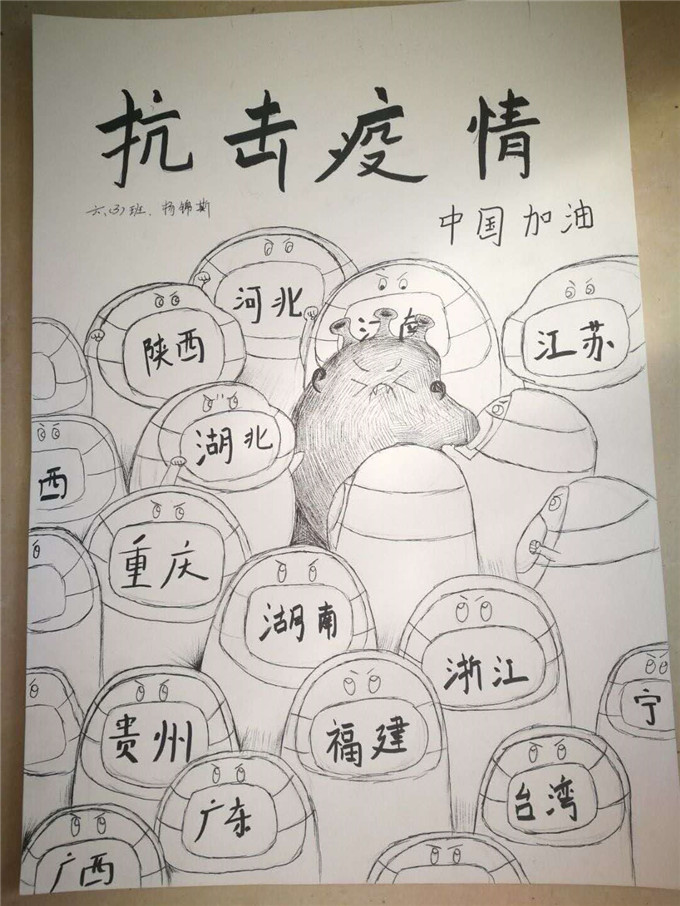 抗击疫情
六、(3)班、杨锦斯
中国加油
河北
河南
陕西
江苏
湖北
西
重庆
湖南
浙江
宁
贵州
福建
广东
台湾
广西